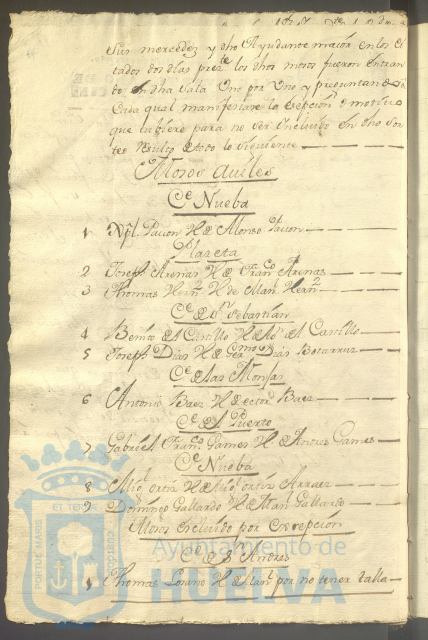 Sus mercedes, y dho Ayudante maior en los ci
tados dos dias prez.te los dhos mosos fueron entran
do en dha Sala Uno por Uno y preguntando a
Cada qual manifestase la exepcion o motibo
que tubiere para no ser Incluido en dho Sor
teo Resulto de todo lo siguiente
Mosos aviles
C.e Nueba
1 Xp.l Pavon H.o de Alonso Pavon
Plazeta
2 Joseph Arenas H.o de Fran.co Arenas
3 Thomas Hern.z H.o de Man.l Hern.z
C.e de S.n Sebastian
4 Benito del Castillo H.o de del Castillo
5 Joseph Dias H.o de Ger.mo Dias
C.e de las Monjas
6 Antonio Baez H.o de Baez
C.e del Puerto
7 Gabriel Fran.co Games H.o de Andres Games
C.e Nueba
8 Orta H.o de Ortiz Arraez
9 Domingo Gallardo H.o de Man.l Gallardo
Mosos Excluido por Excepcion
C.e de S.n Andres
1 Thomas H.o de Man.l por no tener talla
PORTUS MARIS ET TERRAE CUSTODIA
Ayuntamiento de
HUELVA